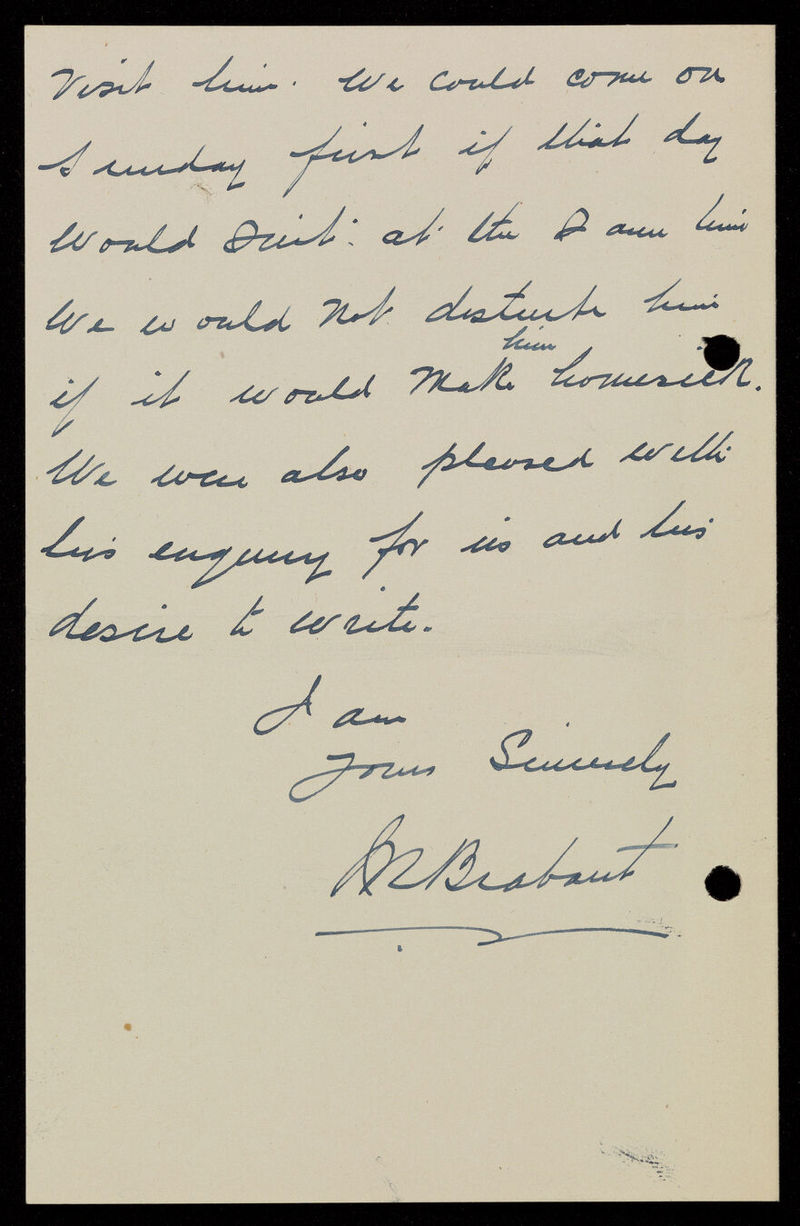 Visit him. We could come on
Sunday first if that day
would suit. at the same time
We would not disturb him
him
if it would make homesick.
We were also pleased with
his enquiry for us and his
desire to write.
I am
Yours Sincerely
Brabant